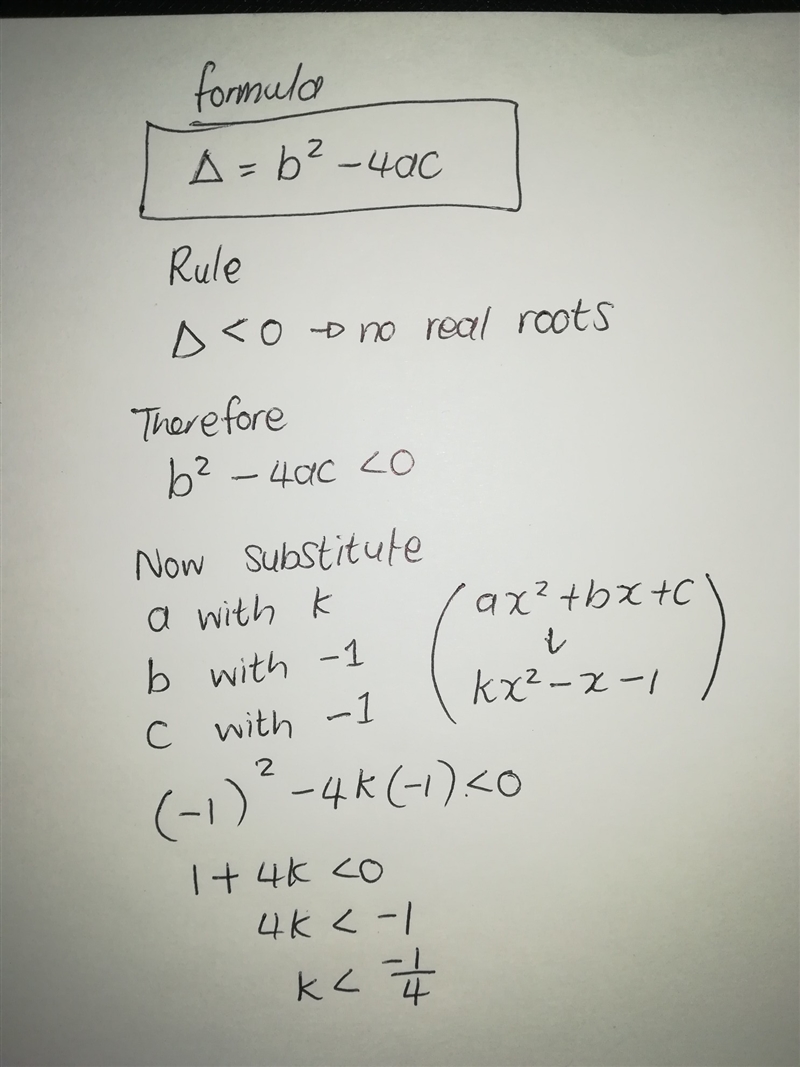 formula
Δ = b² - 4ac
Rule
Δ < 0 → no real roots
Therefore
b² - 4ac < 0
Now substitute
a with k
b with -1
c with -1
(ax² + bx + c
↓
kx² - x - 1)
(-1)² - 4k(-1) < 0
1 + 4k < 0
4k < -1
k < -1/4